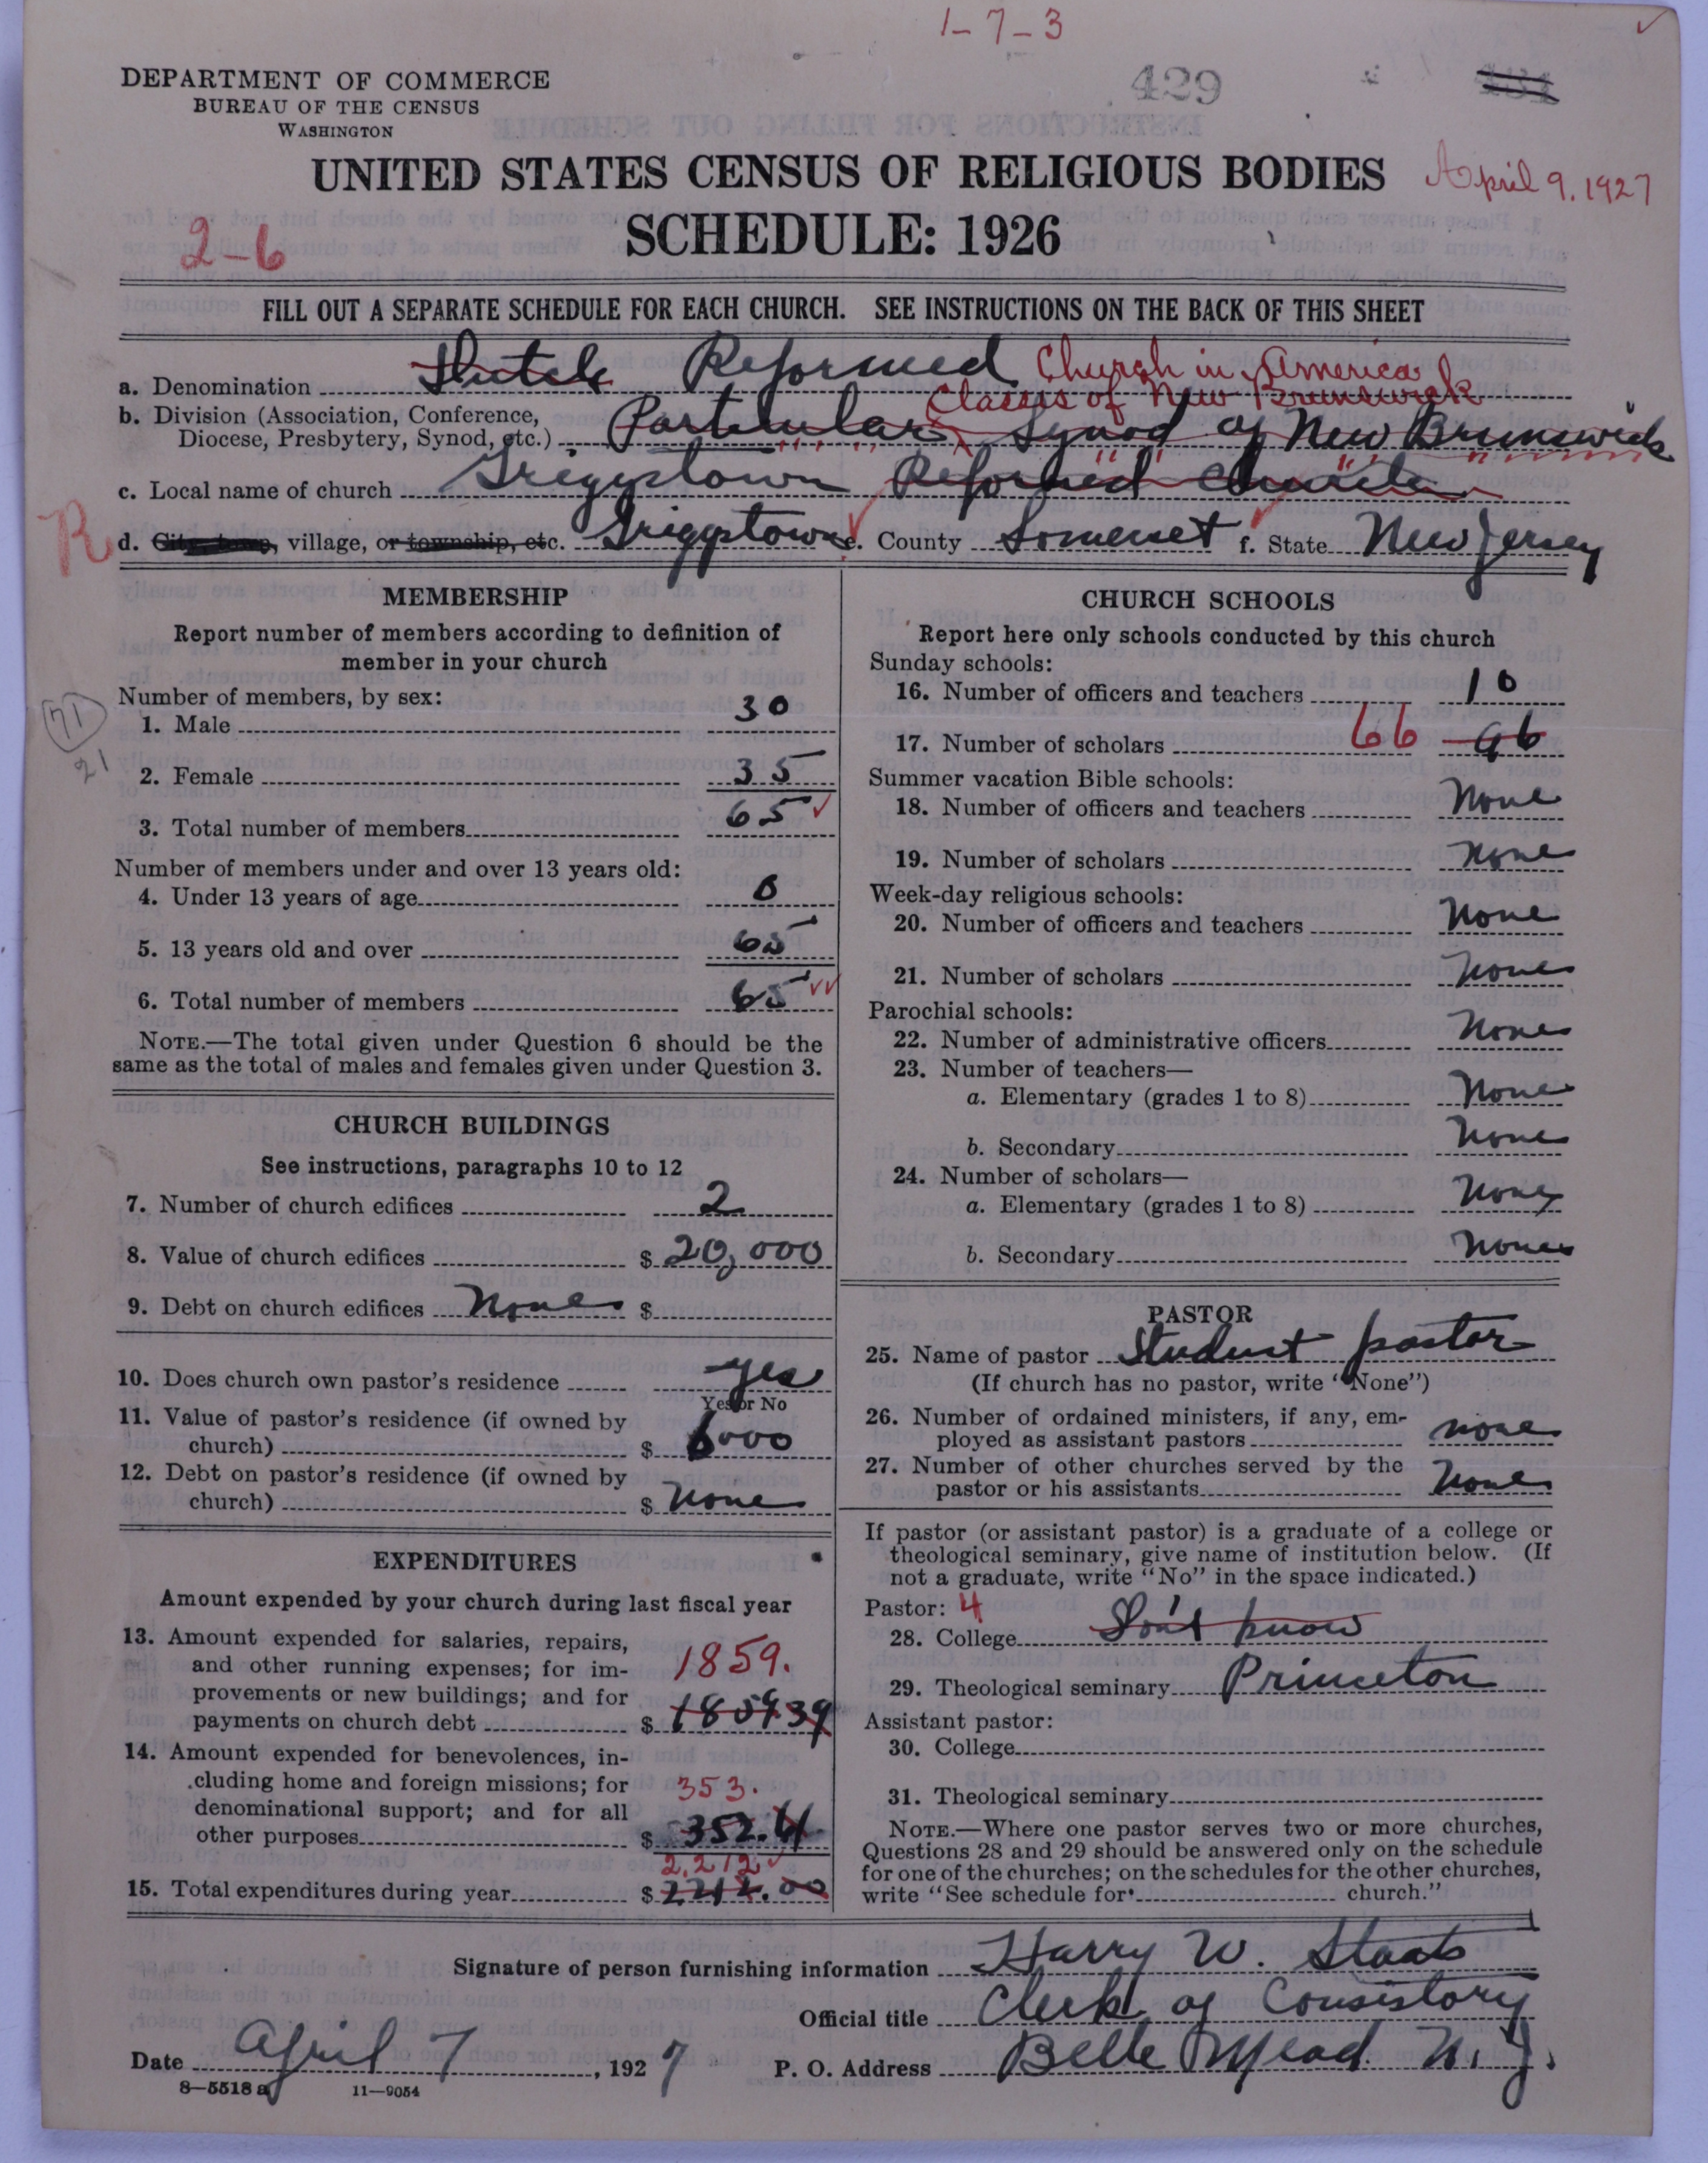 1-7-3
DEPARTMENT OF COMMERCE
BUREAU OF THE CENSUS
WASHINGTON
429
431
UNITED STATES CENSUS OF RELIGIOUS BODIES
April 9, 1927
SCHEDULE: 1926
2-6
FILL OUT A SEPARATE SCHEDULE FOR EACH CHURCH. SEE INSTRUCTIONS ON THE BACK OF THIS SHEET
a. Denomination Dutch Reformed Church in America
Classis of New Brunswick
b. Division (Association, Conference,
Diocese, Presbytery, Synod, etc.) Particular Synod of New Brunswick
c. Local name of church Griggstown Reformed Church
R
d. City, town, village, or township, etc. Griggstown e. County Somerset f. State New Jersey
MEMBERSHIP
Report number of members according to definition of
member in your church
Number of members, by sex:
71
21
1. Male 30
2. Female 35
3. Total number of members 65
Number of members under and over 13 years old:
4. Under 13 years of age 0
5. 13 years old and over 65
6. Total number of members 65
NOTE.—The total given under Question 6 should be the
same as the total of males and females given under Question 3.
CHURCH BUILDINGS
See instructions, paragraphs 10 to 12
7. Number of church edifices 2
8. Value of church edifices $ 20,000
9. Debt on church edifices None $
10. Does church own pastor's residence yes
Yes or No
11. Value of pastor's residence (if owned by
church) $ 6000
12. Debt on pastor's residence (if owned by
church) $ None
EXPENDITURES
Amount expended by your church during last fiscal year
13. Amount expended for salaries, repairs,
and other running expenses; for im-
provements or new buildings; and for
payments on church debt $ 1859.39
1859.
14. Amount expended for benevolences, in-
cluding home and foreign missions; for
denominational support; and for all
other purposes $ 352.61
353.
2,212
15. Total expenditures during year $ 2212.00
CHURCH SCHOOLS
Report here only schools conducted by this church
Sunday schools:
16. Number of officers and teachers 10
17. Number of scholars 66 96
Summer vacation Bible schools:
18. Number of officers and teachers None
19. Number of scholars None
Week-day religious schools:
20. Number of officers and teachers None
21. Number of scholars None
Parochial schools:
22. Number of administrative officers None
23. Number of teachers—
a. Elementary (grades 1 to 8) None
b. Secondary None
24. Number of scholars—
a. Elementary (grades 1 to 8) None
b. Secondary None
PASTOR
25. Name of pastor Student pastor
(If church has no pastor, write "None")
26. Number of ordained ministers, if any, em-
ployed as assistant pastors none
27. Number of other churches served by the
pastor or his assistants None
If pastor (or assistant pastor) is a graduate of a college or
theological seminary, give name of institution below. (If
not a graduate, write "No" in the space indicated.)
Pastor: 4
28. College Don't know
29. Theological seminary Princeton
Assistant pastor:
30. College
31. Theological seminary
NOTE.—Where one pastor serves two or more churches,
Questions 28 and 29 should be answered only on the schedule
for one of the churches; on the schedules for the other churches,
write "See schedule for church."
Signature of person furnishing information Harry W. Staats
Official title Clerk of Consistory
Date April 7, 1927 P. O. Address Belle Mead N.J.
8—5518 a 11—9054